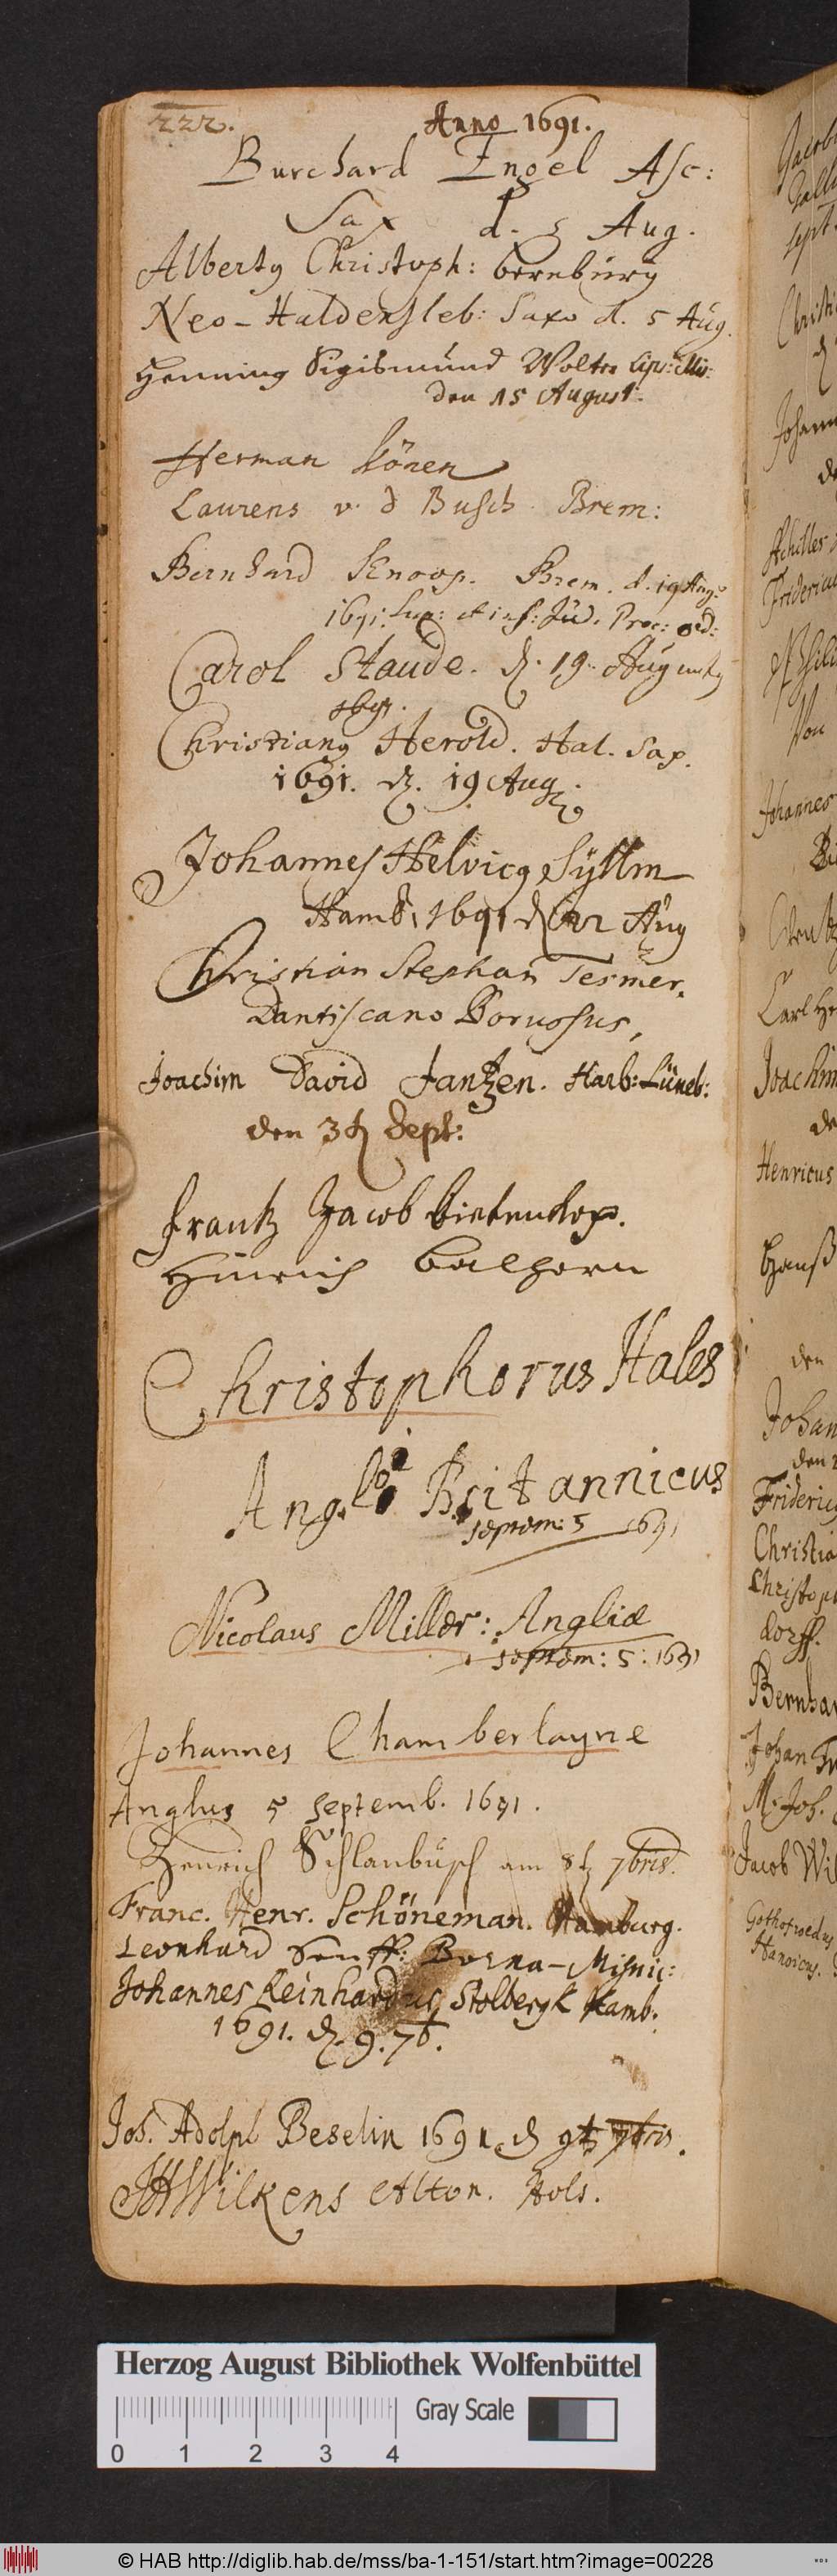 222.
Anno 1691.
Burchard Engel Asc:
Sax d. 5 Aug.
Albertg Christoph: bernburg
Neo-Haldensleb: Saxo d. 5 Aug.
Henning Sigismund Wolter Lips: Mis:
den 15 August:
Herman Könen
Laurens v. d Busch Brem:
Bernhard Knoop. Brem. d. 19 Aug:
1691. Sup: et inf: Jud. Proc: ord:
Carol Staude. d. 19. August
1691.
Christiang Herold. Hal. Sax.
1691. d. 19 Aug.
Johannes Helvicg Syllm
Hamb. 1691 d 22 Aug
Christian Stephan Tesmer.
Dantiscano Borussus,
Joachim David Jantzen. Harb: Lüneb:
den 3t Sept:
Frantz Jacob
Hinrich Balhorn
Christophorus Hales
Anglo Britannicus
septem: 5 1691
Nicolaus Miller: Angliæ
septem: 5: 1691
Johannes Chamberlayne
Anglus 5 Septemb. 1691.
Henrich Schlanbusch am 8t 7bris.
Franc. Henr. Schöneman. Hamburg.
Leonhard Senff: Borna-Misnic:
Johannes Reinhardus Stolbergk Hamb.
1691. d. 9. 7b.
Joh. Adolph Beselin 1691 d 9t 7bris.
JH Wilkens Alton. Hols.
Jacob
Sept
Johann
de
Achilles
Von
Johannes
Carl
Joachim
de
Henricus
Hanß
den
Johan
den
Christia
Christop
dorff.
Bernhar
Johan
M. Joh.
Jacob Wil
Hanoicus.
Herzog August Bibliothek Wolfenbüttel
Gray Scale
0 1 2 3 4
© HAB http://diglib.hab.de/mss/ba-1-151/start.htm?image=00228